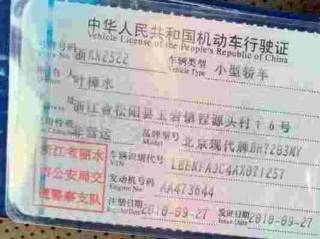 中华人民共和国机动车行驶证
Vehicle License of the People's Republic of China
号牌号码 浙KN2522 车辆类型 小型轿车
Vehicle Type
叶樟水
浙江省松阳县玉岩镇程源头村
非营运 品牌型号 北京现代牌BH7203MY
浙江省丽水 车辆识别代号 LBENFAJC4AX071257
市公安局交 发动机号码 AA473644
Engine No.
通警察支队 注册日期 2010-09-27 发证日期 2010-09-27